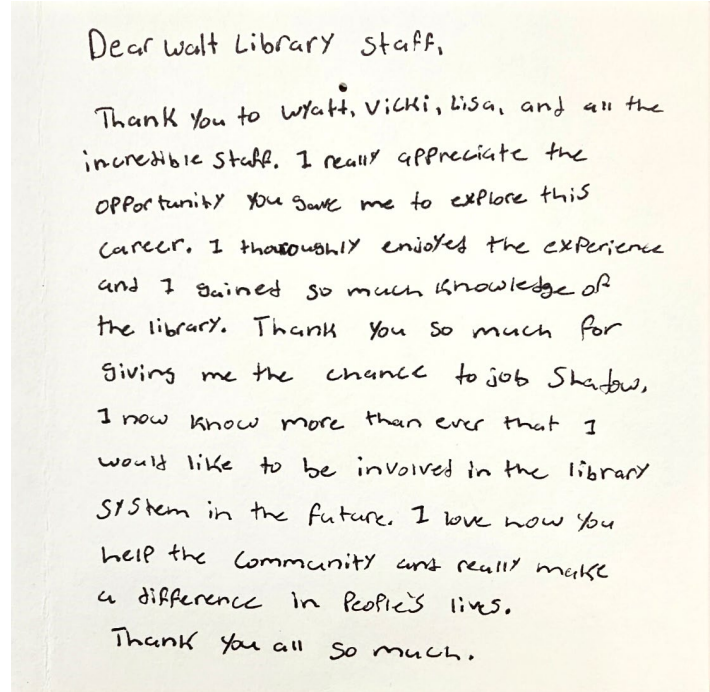 Dear Walt Library Staff,
Thank You to Wyatt, Vicki, Lisa, and all the
incredible staff. I really appreciate the
opportunity you gave me to explore this
career. I thoroughly enjoyed the experience
and I gained so much knowledge of
the library. Thank you so much for
giving me the chance to job shadow.
I now know more than ever that I
would like to be involved in the library
system in the future. I love how you
help the community and really make
a difference in people's lives.
Thank you all so much.